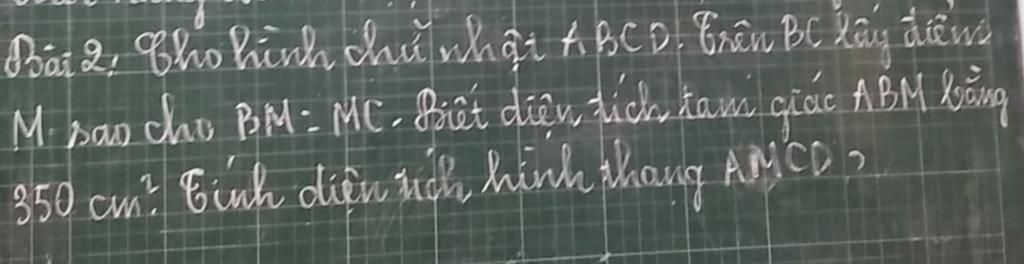 Bài 2: Cho hình chữ nhật ABCD. Trên BC lấy điểm
M sao cho BM = MC. Biết diện tích tam giác ABM bằng
350 cm². Tính diện tích hình thang AMCD?